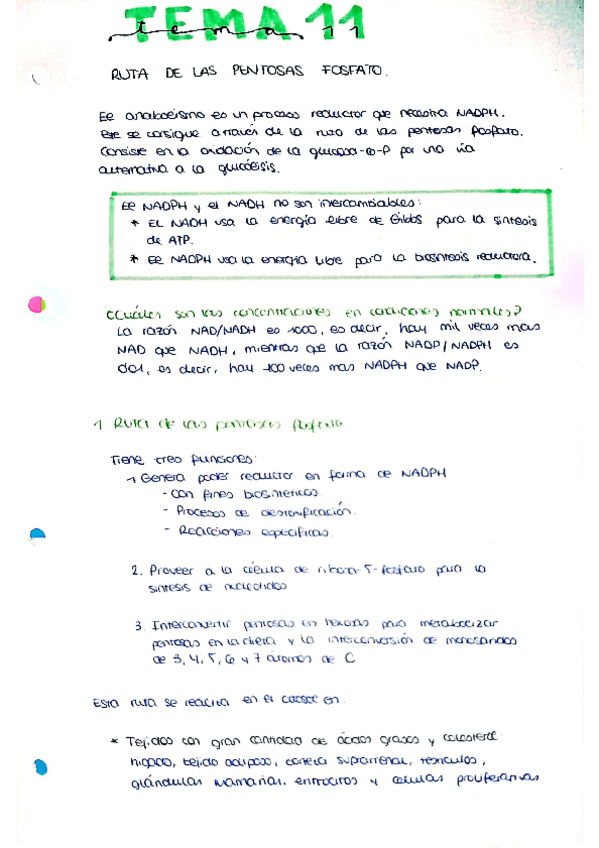 TEMA 11
tema 11
RUTA DE LAS PENTOSAS FOSFATO.
El anabolismo es un proceso reductor que necesita NADPH.
Este se consigue a través de la ruta de las pentosas fosfato.
Consiste en la oxidación de la glucosa-6-P por una vía
alternativa a la glucólisis.
El NADPH y el NADH no son intercambiables:
* EL NADH usa la energía libre de Gibbs para la síntesis
de ATP.
* El NADPH usa la energía libre para la biosíntesis reductora.
¿Cuáles son las concentraciones en condiciones normales?
La razón NAD/NADH es 1000, es decir, hay mil veces mas
NAD que NADH, mientras que la razón NADP/NADPH es
0'01, es decir, hay 100 veces mas NADPH que NADP.
1 Ruta de las pentosas fosfato
Tiene tres funciones:
1 Genera poder reductor en forma de NADPH
- Con fines biosintéticos
- Procesos de destoxificación.
- Reacciones específicas
2. Proveer a la célula de ribosa-5-fosfato para la
síntesis de nucleótidos
3. Interconvertir pentosas en hexosas para metabolizar
pentosas en la dieta y la interconversión de monosacáridos
de 3, 4, 5, 6 y 7 átomos de C
Esta ruta se realiza en el citosol en:
* Tejidos con gran cantidad de ácidos grasos y colesterol:
hígado, tejido adiposo, corteza suprarrenal, testículos,
glándulas mamarias, eritrocitos y células proliferativas